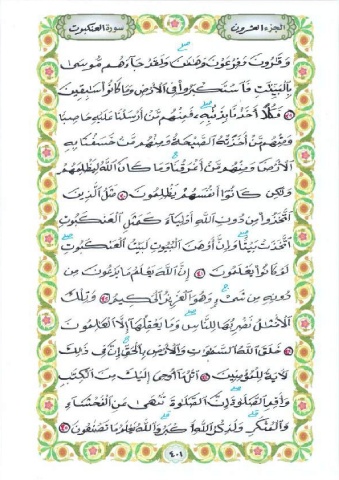 الجزء العشرون سورة العنكبوت
وَقَٰرُونَ وَفِرْعَوْنَ وَهَٰمَٰنَ وَلَقَدْ جَآءَهُم مُّوسَىٰ
بِٱلْبَيِّنَٰتِ فَٱسْتَكْبَرُوا۟ فِى ٱلْأَرْضِ وَمَا كَانُوا۟ سَٰبِقِينَ
٣٩ فَكُلًّا أَخَذْنَا بِذَنۢبِهِۦ فَمِنْهُم مَّنْ أَرْسَلْنَا عَلَيْهِ حَاصِبًا
وَمِنْهُم مَّنْ أَخَذَتْهُ ٱلصَّيْحَةُ وَمِنْهُم مَّنْ خَسَفْنَا بِهِ
ٱلْأَرْضَ وَمِنْهُم مَّنْ أَغْرَقْنَا وَمَا كَانَ ٱللَّهُ لِيَظْلِمَهُمْ
وَلَٰكِن كَانُوٓا۟ أَنفُسَهُمْ يَظْلِمُونَ ٤٠ مَثَلُ ٱلَّذِينَ
ٱتَّخَذُوا۟ مِن دُونِ ٱللَّهِ أَوْلِيَآءَ كَمَثَلِ ٱلْعَنكَبُوتِ
ٱتَّخَذَتْ بَيْتًا وَإِنَّ أَوْهَنَ ٱلْبُيُوتِ لَبَيْتُ ٱلْعَنكَبُوتِ
لَوْ كَانُوا۟ يَعْلَمُونَ ٤١ إِنَّ ٱللَّهَ يَعْلَمُ مَا يَدْعُونَ مِن
دُونِهِۦ مِن شَىْءٍ وَهُوَ ٱلْعَزِيزُ ٱلْحَكِيمُ ٤٢ وَتِلْكَ
ٱلْأَمْثَٰلُ نَضْرِبُهَا لِلنَّاسِ وَمَا يَعْقِلُهَآ إِلَّا ٱلْعَٰلِمُونَ
٤٣ خَلَقَ ٱللَّهُ ٱلسَّمَٰوَٰتِ وَٱلْأَرْضَ بِٱلْحَقِّ إِنَّ فِى ذَٰلِكَ
لَءَايَةً لِّلْمُؤْمِنِينَ ٤٤ ٱتْلُ مَآ أُوحِىَ إِلَيْكَ مِنَ ٱلْكِتَٰبِ
وَأَقِمِ ٱلصَّلَوٰةَ إِنَّ ٱلصَّلَوٰةَ تَنْهَىٰ عَنِ ٱلْفَحْشَآءِ
وَٱلْمُنكَرِ وَلَذِكْرُ ٱللَّهِ أَكْبَرُ وَٱللَّهُ يَعْلَمُ مَا تَصْنَعُونَ ٤٥
٤٠١